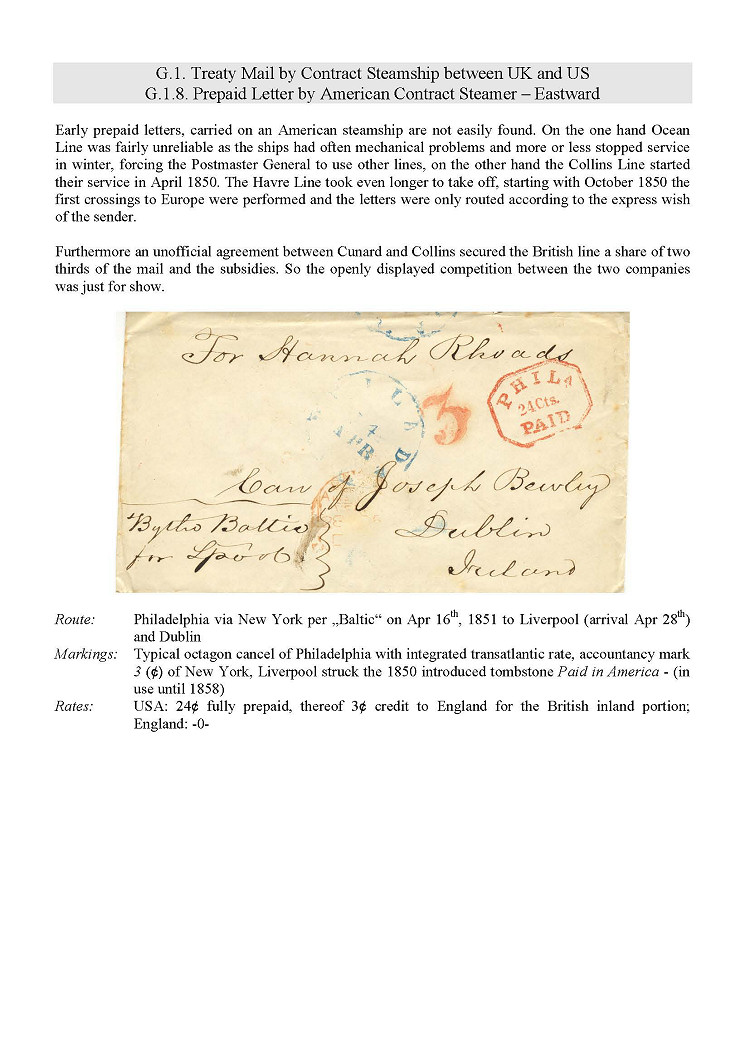 G.1. Treaty Mail by Contract Steamship between UK and US
G.1.8. Prepaid Letter by American Contract Steamer – Eastward
Early prepaid letters, carried on an American steamship are not easily found. On the one hand Ocean
Line was fairly unreliable as the ships had often mechanical problems and more or less stopped service
in winter, forcing the Postmaster General to use other lines, on the other hand the Collins Line started
their service in April 1850. The Havre Line took even longer to take off, starting with October 1850 the
first crossings to Europe were performed and the letters were only routed according to the express wish
of the sender.
Furthermore an unofficial agreement between Cunard and Collins secured the British line a share of two
thirds of the mail and the subsidies. So the openly displayed competition between the two companies
was just for show.
For Hannah Rhoads
PHILA
24 Cts.
PAID
3
APR
Care of Joseph Bewley
Dublin
Ireland
By the Baltic
for Lpool
Route: Philadelphia via New York per „Baltic“ on Apr 16th, 1851 to Liverpool (arrival Apr 28th)
and Dublin
Markings: Typical octagon cancel of Philadelphia with integrated transatlantic rate, accountancy mark
3 (¢) of New York, Liverpool struck the 1850 introduced tombstone Paid in America - (in
use until 1858)
Rates: USA: 24¢ fully prepaid, thereof 3¢ credit to England for the British inland portion;
England: -0-